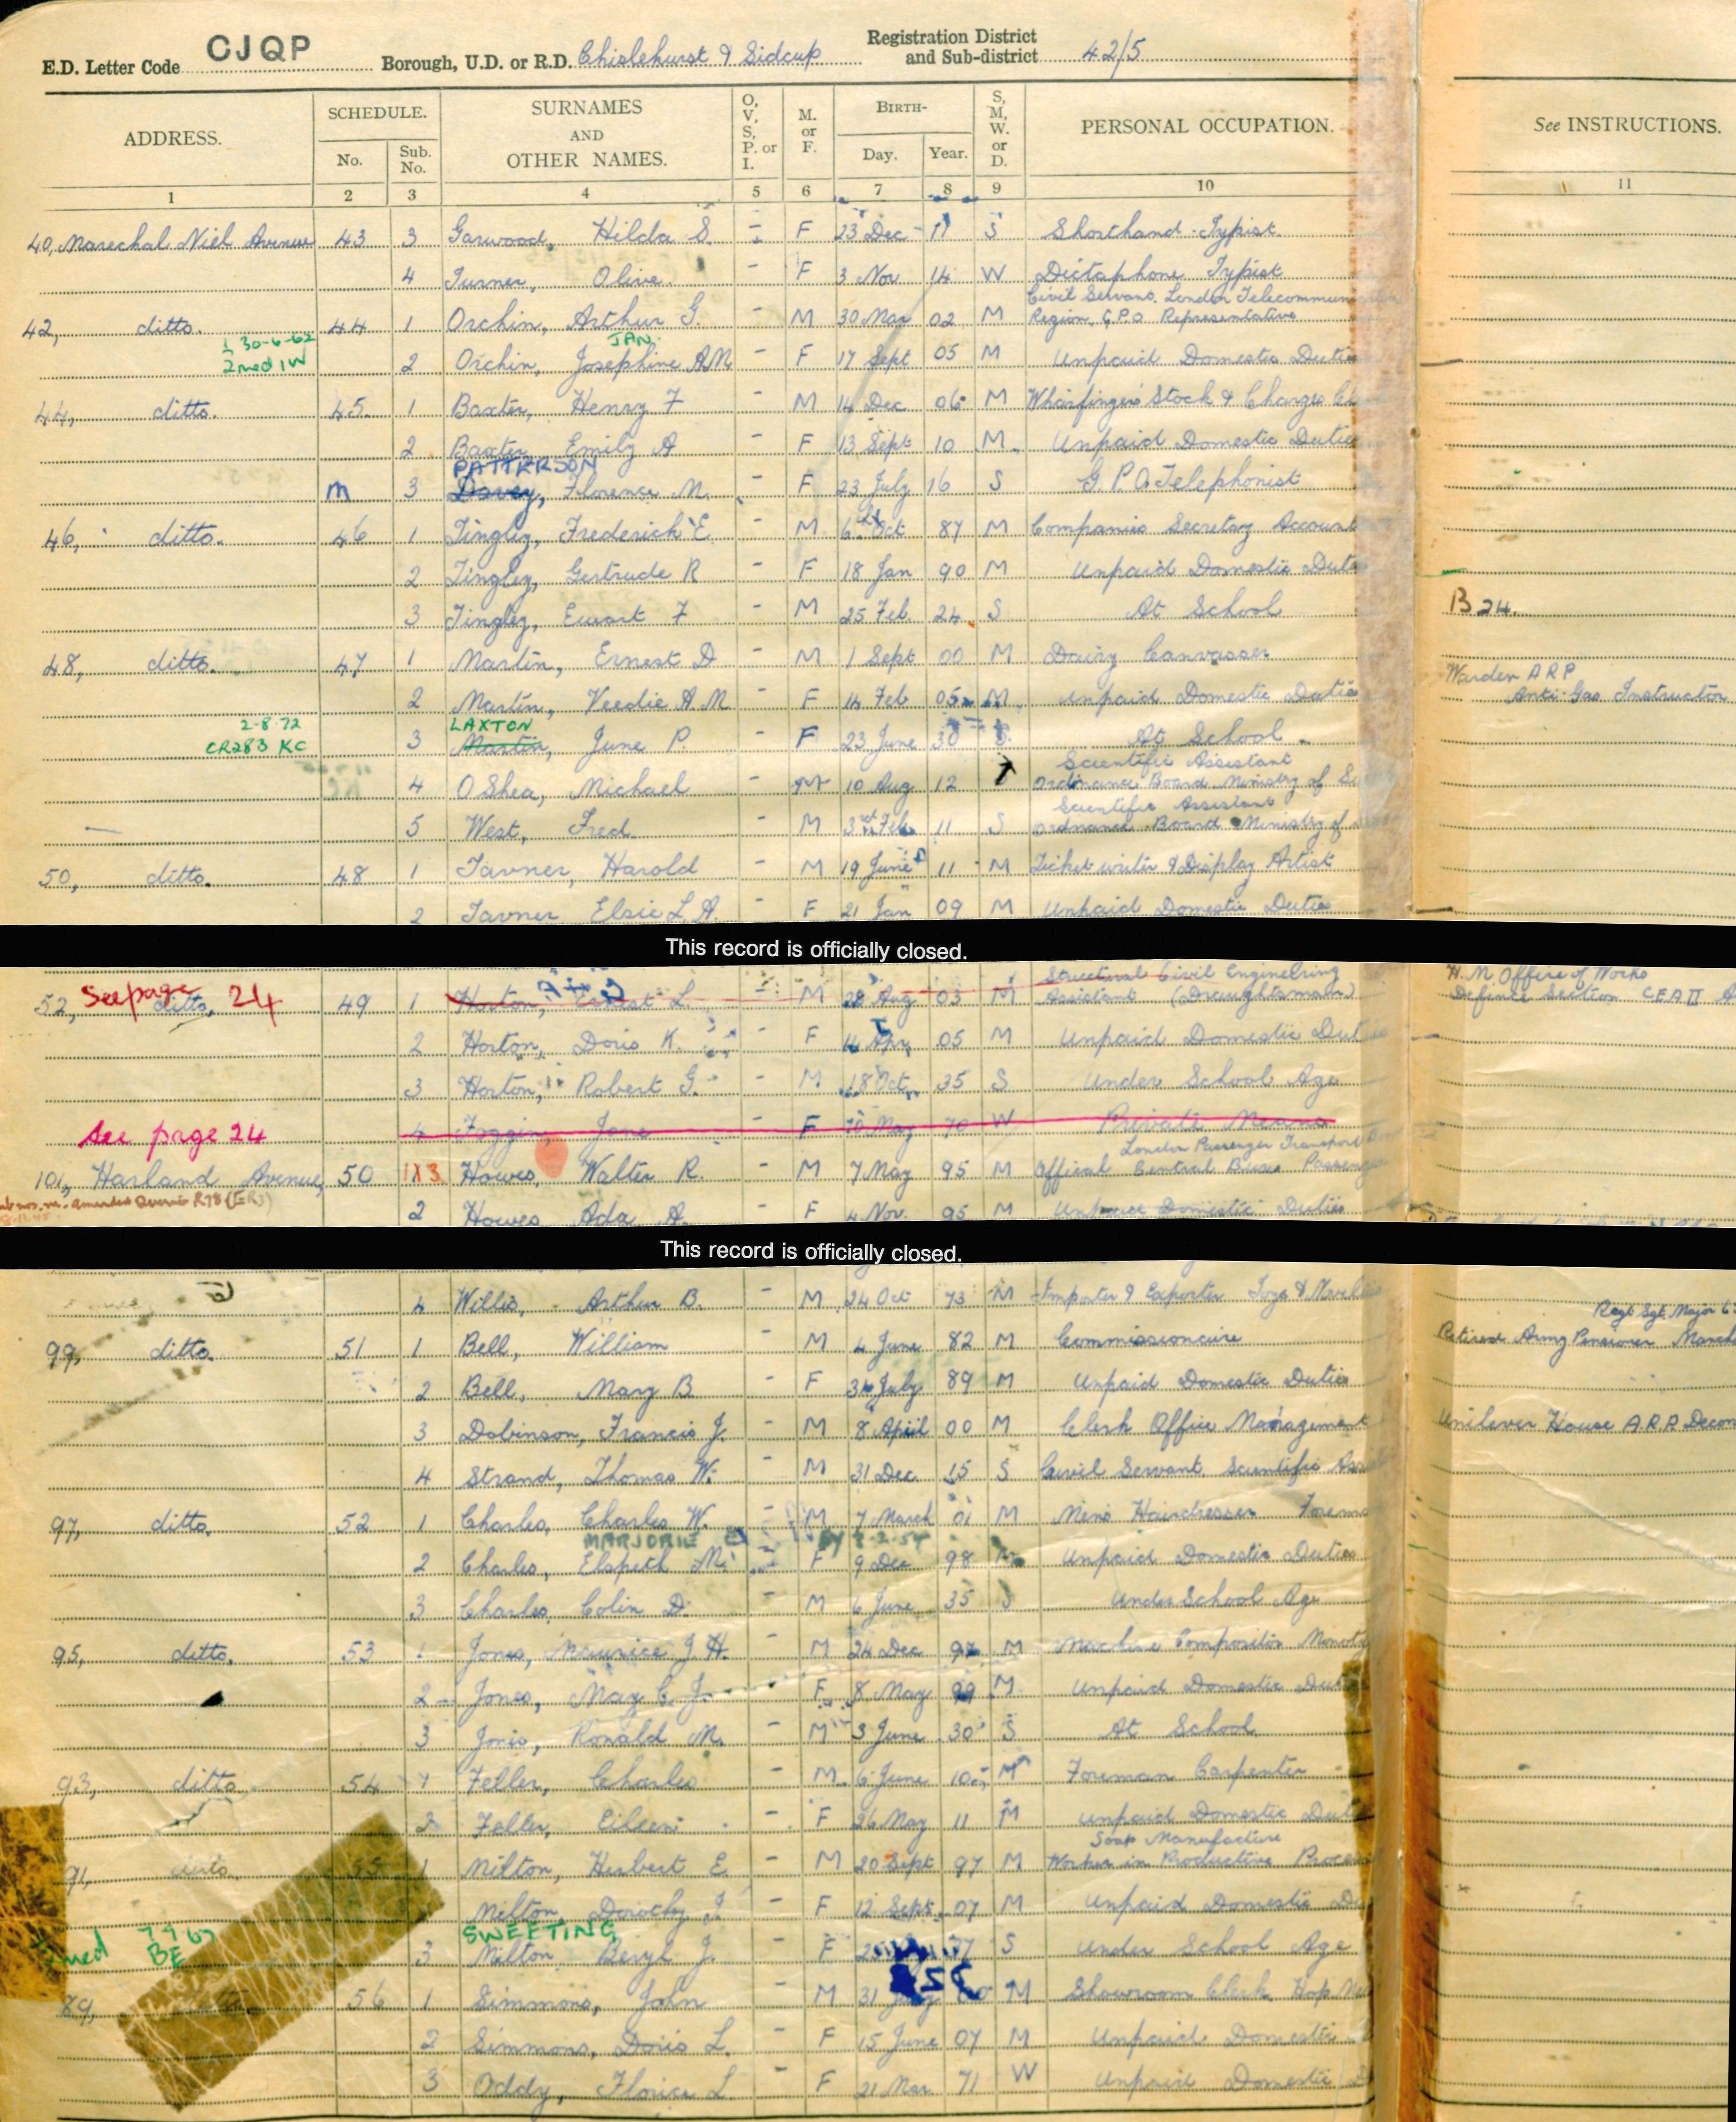 E.D. Letter Code CJQP Borough, U.D. or R.D. Chislehurst & Sidcup Registration District and Sub-district 42/5
ADDRESS. SCHEDULE. No. Sub. No. SURNAMES AND OTHER NAMES. O, V, S, P. or I. M. or F. BIRTH- Day. Year. S, M, W. or D. PERSONAL OCCUPATION. See INSTRUCTIONS.
1 2 3 4 5 6 7 8 9 10 11
40, Marechal Niel Avenue 43 3 Garwood, Hilda S. - F 23 Dec 11 S Shorthand-Typist
4 Turner, Olive - F 3 Nov 14 W Dictaphone Typist
Civil Servant London Telecommun
42, ditto. 44 1 Orchin, Arthur G. - M 30 Mar 02 M Region, G.P.O. Representative
1 30-6-62 JAN.
2 med 1W 2 Orchin, Josephine A.M. - F 17 Sept 05 M Unpaid Domestic Duties
44, ditto. 45 1 Baxter, Henry F - M 14 Dec 06 M Wharfingers Stock & Charges
2 Baxter, Emily A - F 13 Sept 10 M Unpaid Domestic Duties
PATTERSON
m 3 Davey, Florence M. F 23 July 16 S G.P.O. Telephonist
46, ditto. 46 1 Tingley, Frederick E. - M 6 Oct 87 M Companies Secretary Account
2 Tingley, Gertrude R - F 18 Jan 90 M Unpaid Domestic Duties
3 Tingley, Ewart F - M 25 Feb 24 S At School B 24.
48, ditto. 47 1 Martin, Ernest D - M 1 Sept 00 M Dairy Canvasser Warden ARP
2 Martin, Veedie A.M. - F 14 Feb 05 M Unpaid Domestic Duties Anti-Gas Instructor
2-8-72 LAXTON
CR283 KC 3 Martin, June P. - F 23 June 30 S At School
Scientific Assistant
4 O'Shea, Michael - M 10 Aug 12 Ordnance Board Ministry of
Scientific Assistant
5 West, Fred - M 3rd Feb 11 S Ordnance Board Ministry of
50, ditto. 48 1 Tavner, Harold - M 19 June 11 M Ticket writer & Display Artist
2 Tavner Elsie L.A. - F 21 Jan 09 M Unpaid Domestic Duties
This record is officially closed.
See page 24 Structural Civil Engineering H.M. Office of Works
52, ditto, 49 1 Horton, Ernest L. - M 28 Aug 03 M Assistant (Draughtsman) Defence Section CEA II
2 Horton, Doris K. F 4 Apr 05 M Unpaid Domestic Duties
3 Horton, Robert G. - M 18 Oct 35 S Under School Age
See page 24 4 Foggin, Jane - F 10 May 70 W Private Means
London Passenger Transport
101, Harland Avenue, 50 1 X 3 Howes, Walter R. - M 7 May 95 M Official Central Buses Passenger
2 Howes Ada A. - F 4 Nov. 95 M Unpaid Domestic Duties
This record is officially closed.
4 Willis, Arthur B. - M 24 Oct 73 M Importer & Exporter Toys & Novelties
Regt Sgt Major
99, ditto. 51 1 Bell, William - M 4 June 82 M Commissionaire Retired Army Pensioner
2 Bell, Mary B. - F July 89 M Unpaid Domestic Duties
3 Dobinson, Francis J. - M 8 April 00 M Clerk Office Management Unilever House A.R.P. Decon
4 Strand, Thomas W. - M 31 Dec 15 S Civil Servant Scientific
97, ditto, 52 1 Charles, Charles W. - M 7 March 01 M Mens Hairdresser
MARJORIE
2 Charles, Elspeth M. F 9 Dec 98 Unpaid Domestic Duties
3 Charles, Colin D. M 6 June 35 S Under School Age
95, ditto, 53 1 Jones, Maurice J.H. - M 24 Dec 97 M Machine Compositor
2 Jones, May C.J. F 8 May 99 M Unpaid Domestic
3 Jones, Ronald M. - M 3 June 30 S At School
93, ditto. 54 1 Feller, Charles - M 6 June 10 M Foreman Carpenter
2 Feller, Eileen - F 26 May 11 M Unpaid Domestic
Soap Manufacture
91, ditto, 55 1 Milton, Herbert E. - M 20 Sept 97 M Worker in Productive Process
Milton, Dorothy J. - F 12 Sept 07 M Unpaid Domestic
SWEETING
BE 3 Milton Beryl J. - F 37 S Under School Age
89, 56 1 Simmons, John - M 31 M Showroom Clerk
2 Simmons, Doris L. - F 15 June 07 M Unpaid Domestic
3 Oddy, Florice L. - F 21 Mar 71 W Unpaid Domestic